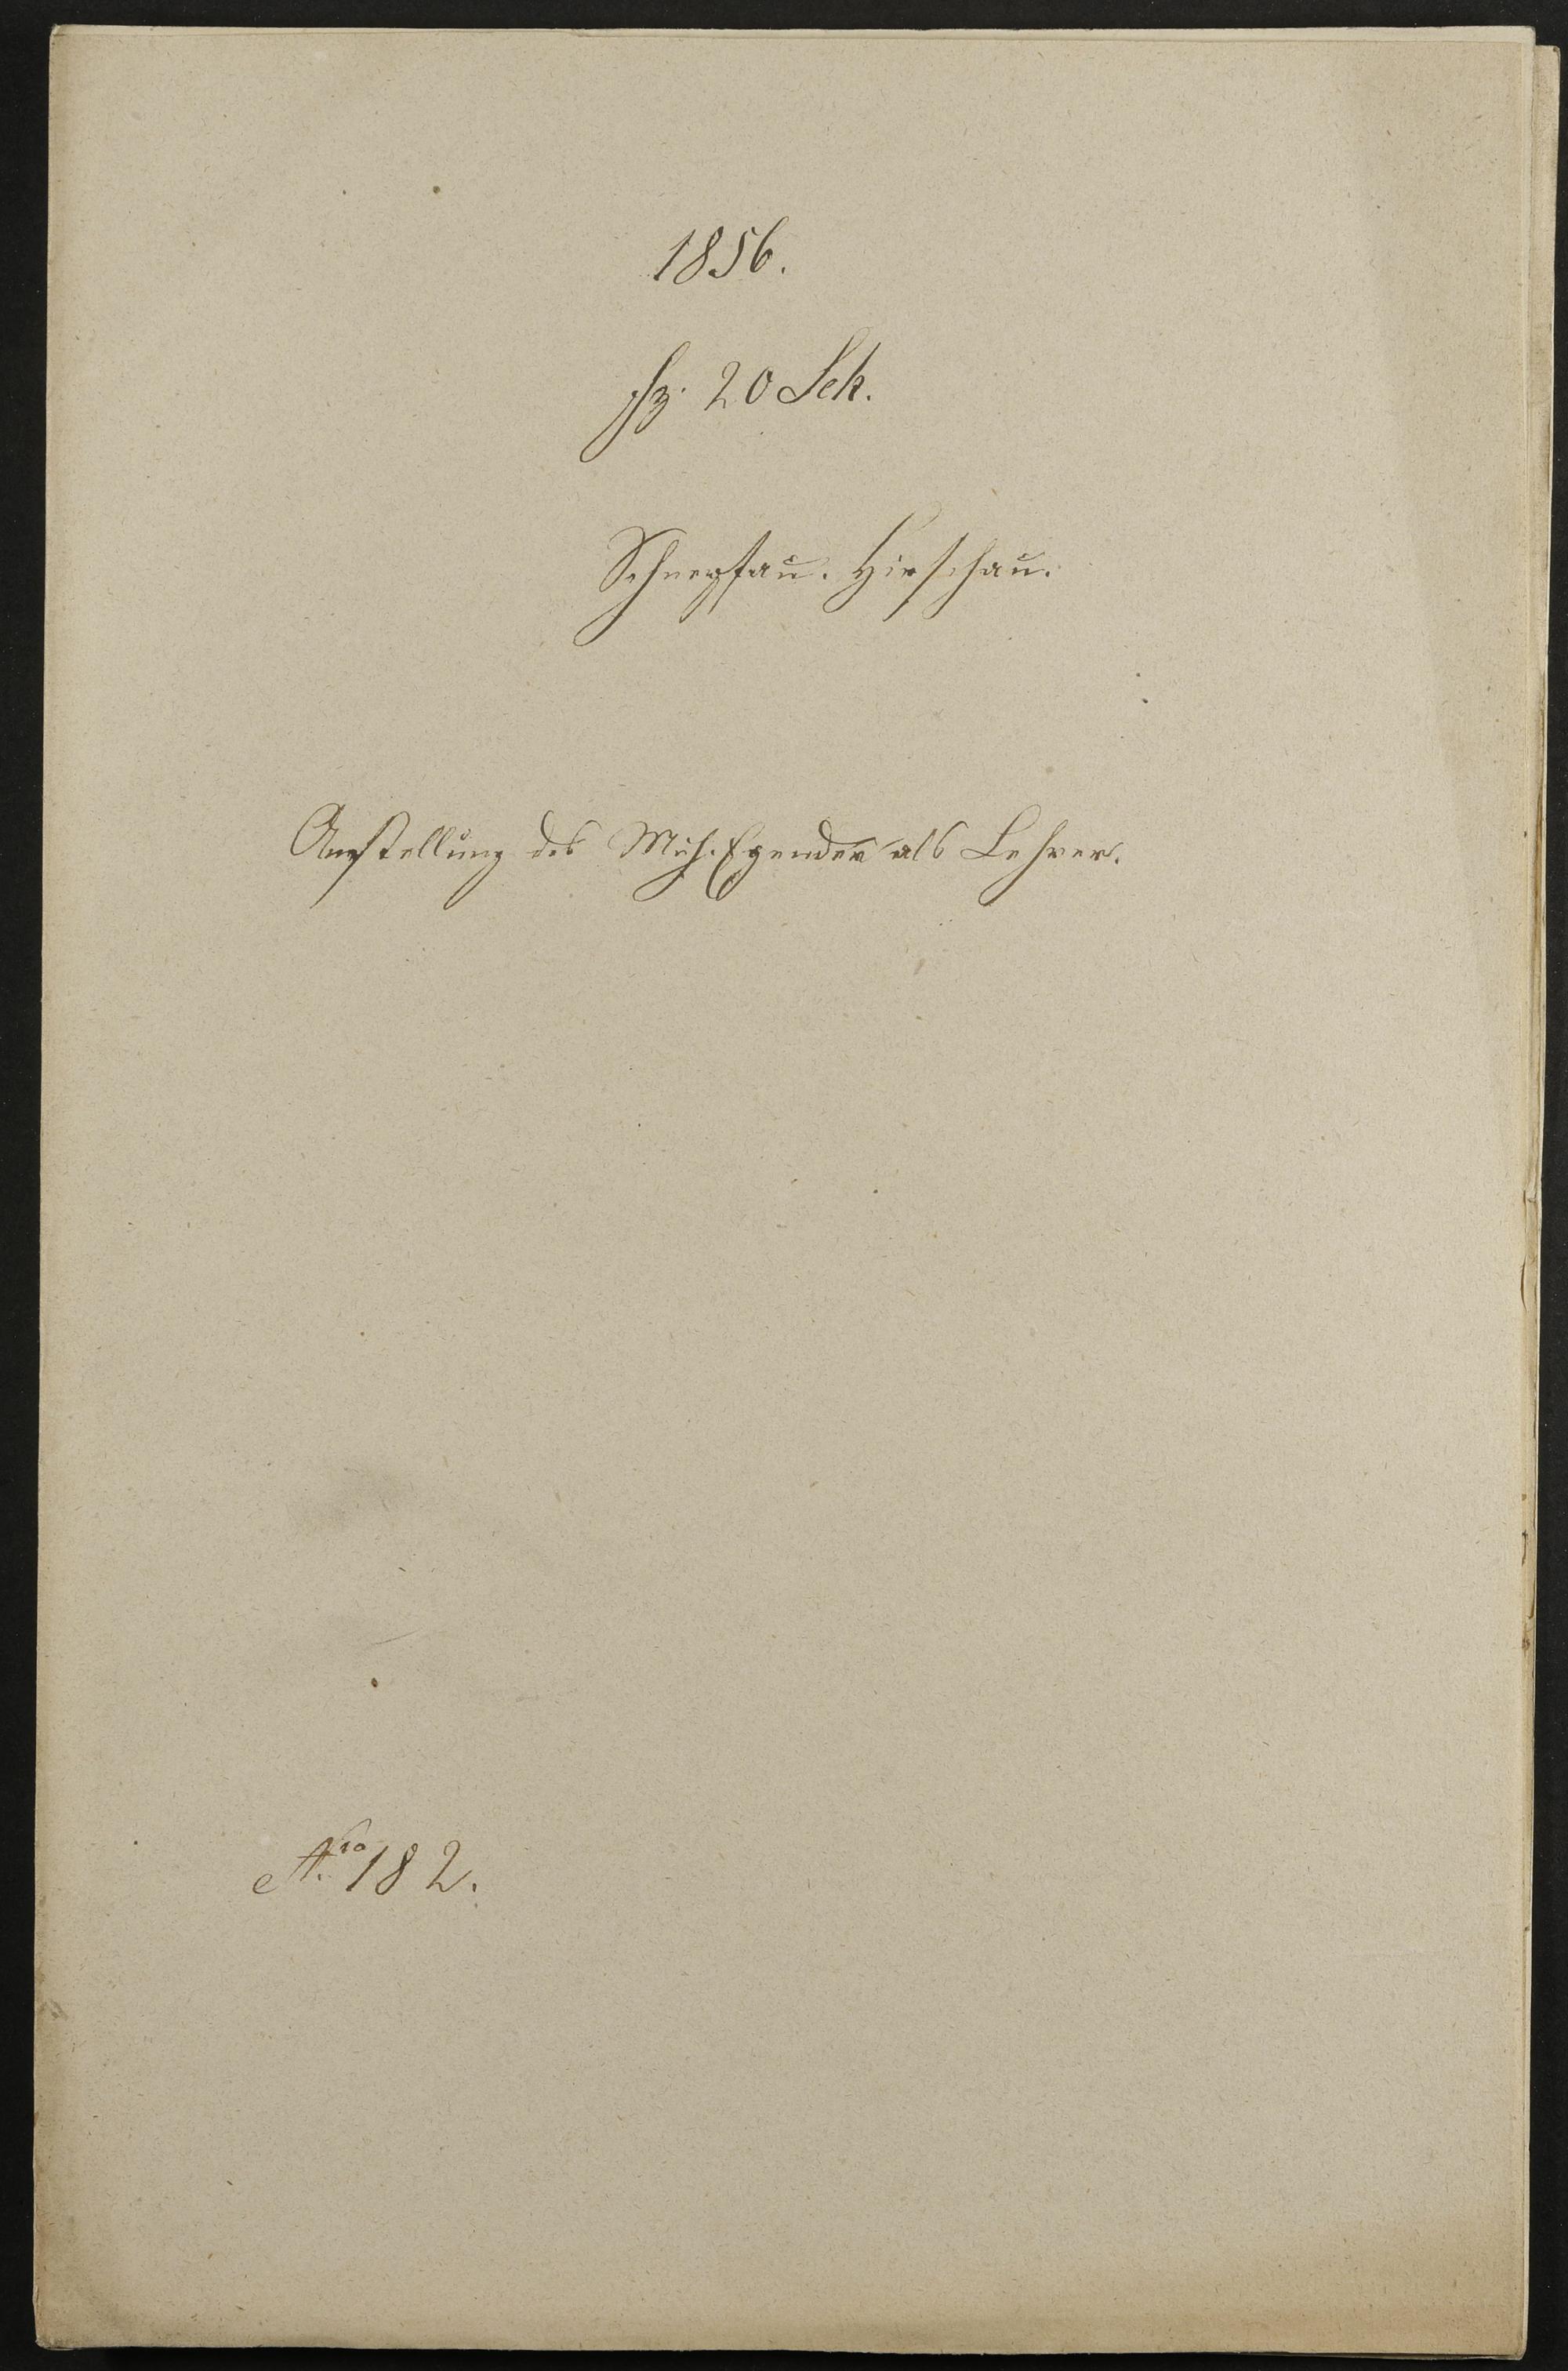 1856.
fz. 20 Sch.
Schnepfau. Hirschau.
Anstellung des Mich. Egender als Lehrer.
No. 182.